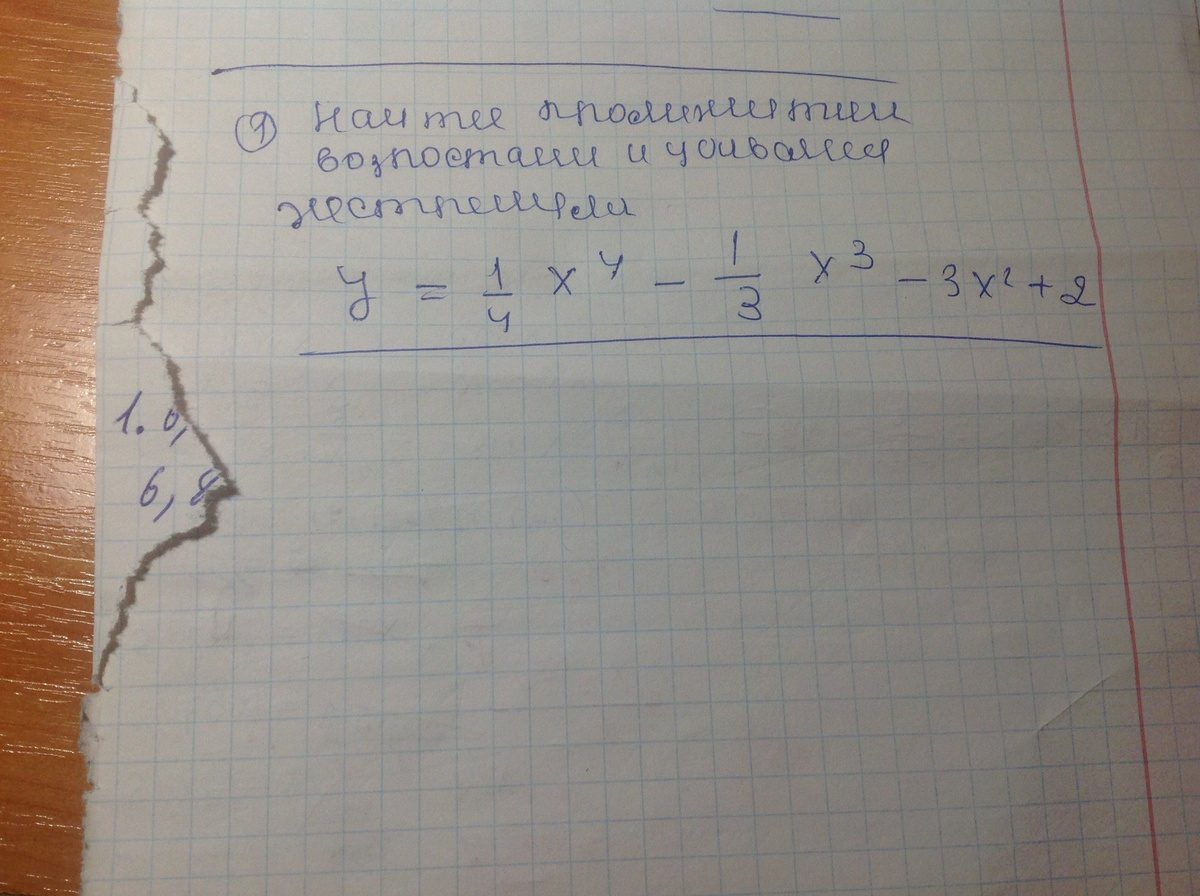 ① Найти промежутки
возростани и убивания
экстремумы
y = 1/4 x^4 - 1/3 x^3 - 3x^2 + 2
1. 0,
6, 8